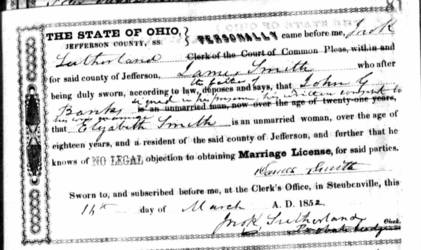 THE STATE OF OHIO,
JEFFERSON COUNTY, SS. PERSONALLY came before me, Jno K
Sutherland Clerk of the Court of Common Pleas, within and
for said county of Jefferson, James Smith who after
the father of
being duly sworn, according to law, deposes and says, that John G
signed in his presence his written consent to
Banks is an unmarried man, now over the age of twenty-one years,
his marriage
that Elizabeth Smith is an unmarried woman, over the age of
eighteen years, and a resident of the said county of Jefferson, and further that he
knows of NO LEGAL objection to obtaining Marriage License, for said parties.
James Smith
Sworn to, and subscribed before me, at the Clerk's Office, in Steubenville, this
day of March A. D. 1852
Jno K Sutherland Clerk.
Probate Judge